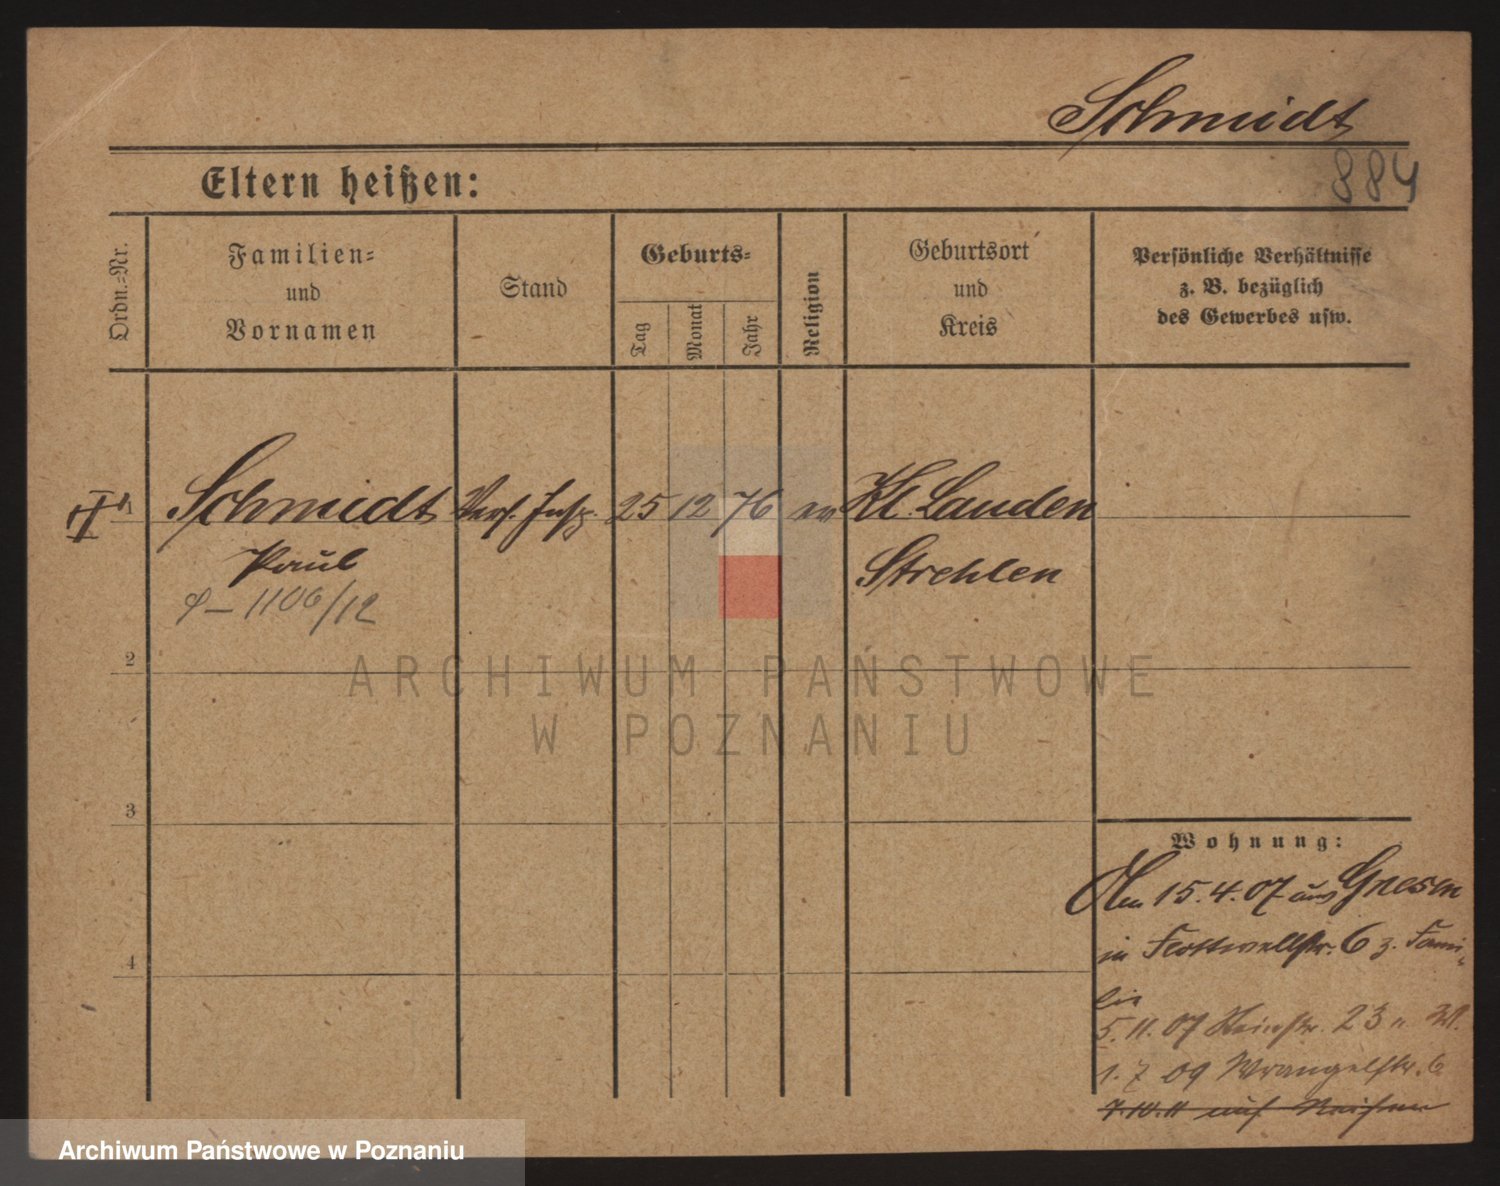 Schmidt
884
Eltern heißen:
Ordn.-Nr.
Familien-
und
Vornamen
Stand
Geburts-
Tag
Monat
Jahr
Religion
Geburtsort
und
Kreis
Persönliche Verhältnisse
z. B. bezüglich
des Gewerbes usw.
Schmidt Vers. Insp. 25 12 76 ev Kl. Lauden
Paul Strehlen
1106/12
2
ARCHIWUM PAŃSTWOWE
W POZNANIU
3
Wohnung:
Am 15.4.07 aus Gnesen
in Flottwellstr. 6 z. Fami-
lie
5.11.07 23
4
1.7 09 Wrangelstr. 6
7.10.11 auf Reisen
Archiwum Państwowe w Poznaniu